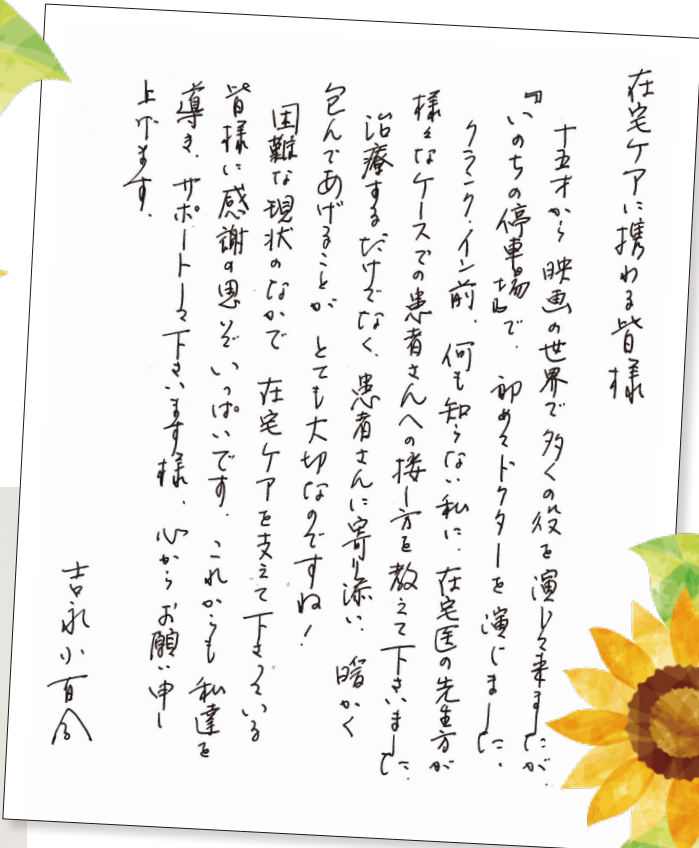 在宅ケアに携わる皆様
十五才から映画の世界で多くの役を演じて来ましたが、
『いのちの停車場』で、初めてドクターを演じました。
クランク・イン前、何も知らない私に、在宅医の先生方が
様々なケースでの患者さんへの接し方を教えて下さいました。
治療するだけでなく、患者さんに寄り添い、暖かく
包んであげることが とても大切なのですね!
困難な現状のなかで 在宅ケアを支えて下さっている
皆様に感謝の思いでいっぱいです。これからも私達を
導き、サポートして下さいます様、心からお願い申し
上げます。
吉永小百合